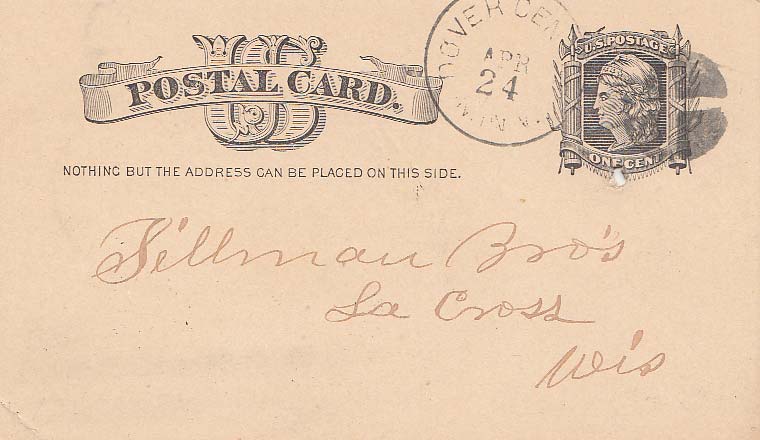 US
POSTAL CARD.
DOVER CEN
APR
24
MINN.
U.S. POSTAGE
ONE CENT
NOTHING BUT THE ADDRESS CAN BE PLACED ON THIS SIDE.
Tillman Bro's
La Cross
Wis